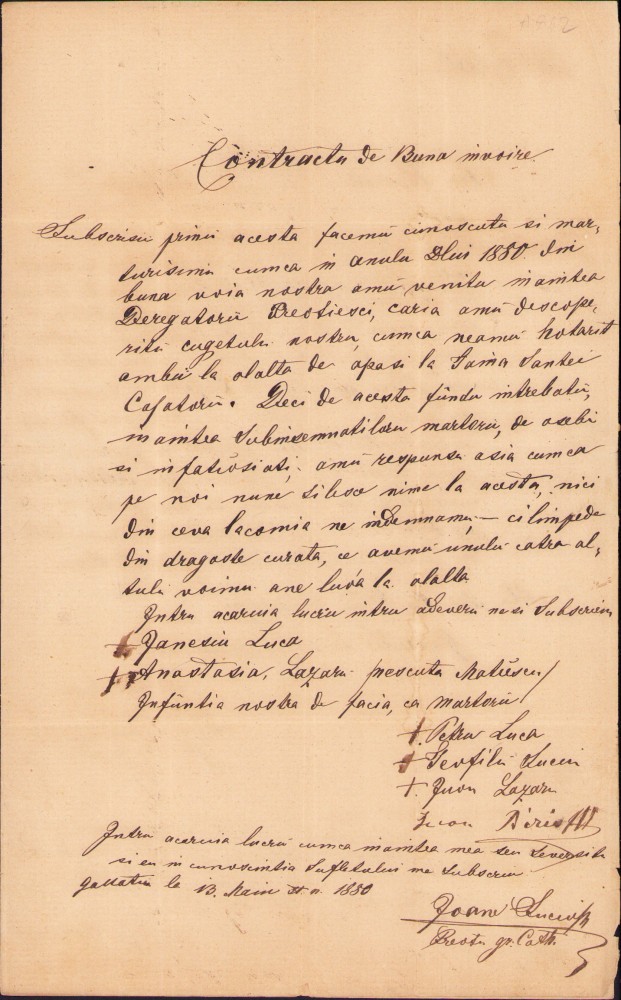 Contractu de Buna invoire.
Subscrisii prin acesta facemu cunoscutu si mar-
turisimu cumca in anulu Dlui 1880. din
buna voia nostra amu venitu inaintea
Deregatorii Preotiesci, caria amu descope-
ritu cugetulu nostru, cumca neamu hotarit
ambii la olalta de a pasi la Taina Santei
Casatorii. Deci de acesta fiindu intrebati,
inaintea Subinsemnatiloru martori, de osebi
si infatiosiati, amu respunsu asia cumca
pe noi nune silesce nime la acesta, nici
din ceva lacomia ne indemnamu, – ci limpede
din dragoste curata, ce avemu unulu catra al-
tulu voimu ane luá la olalta
Intru acaruia lucru intru adeveru ne si Subscriem
+ Luca
+ Anastasia, Lazaru
Infiintia nostra de facia, ca martori
+. Petru Luca
+ Teofilu
+. Juon Lazaru
Juon
Intru acaruia lucru cumca inaintea mea seu Seversitu
si eu in cunoscintia Sufletului me Subscriu
la 13. 1880
Joane
Preotu gr. Cath.